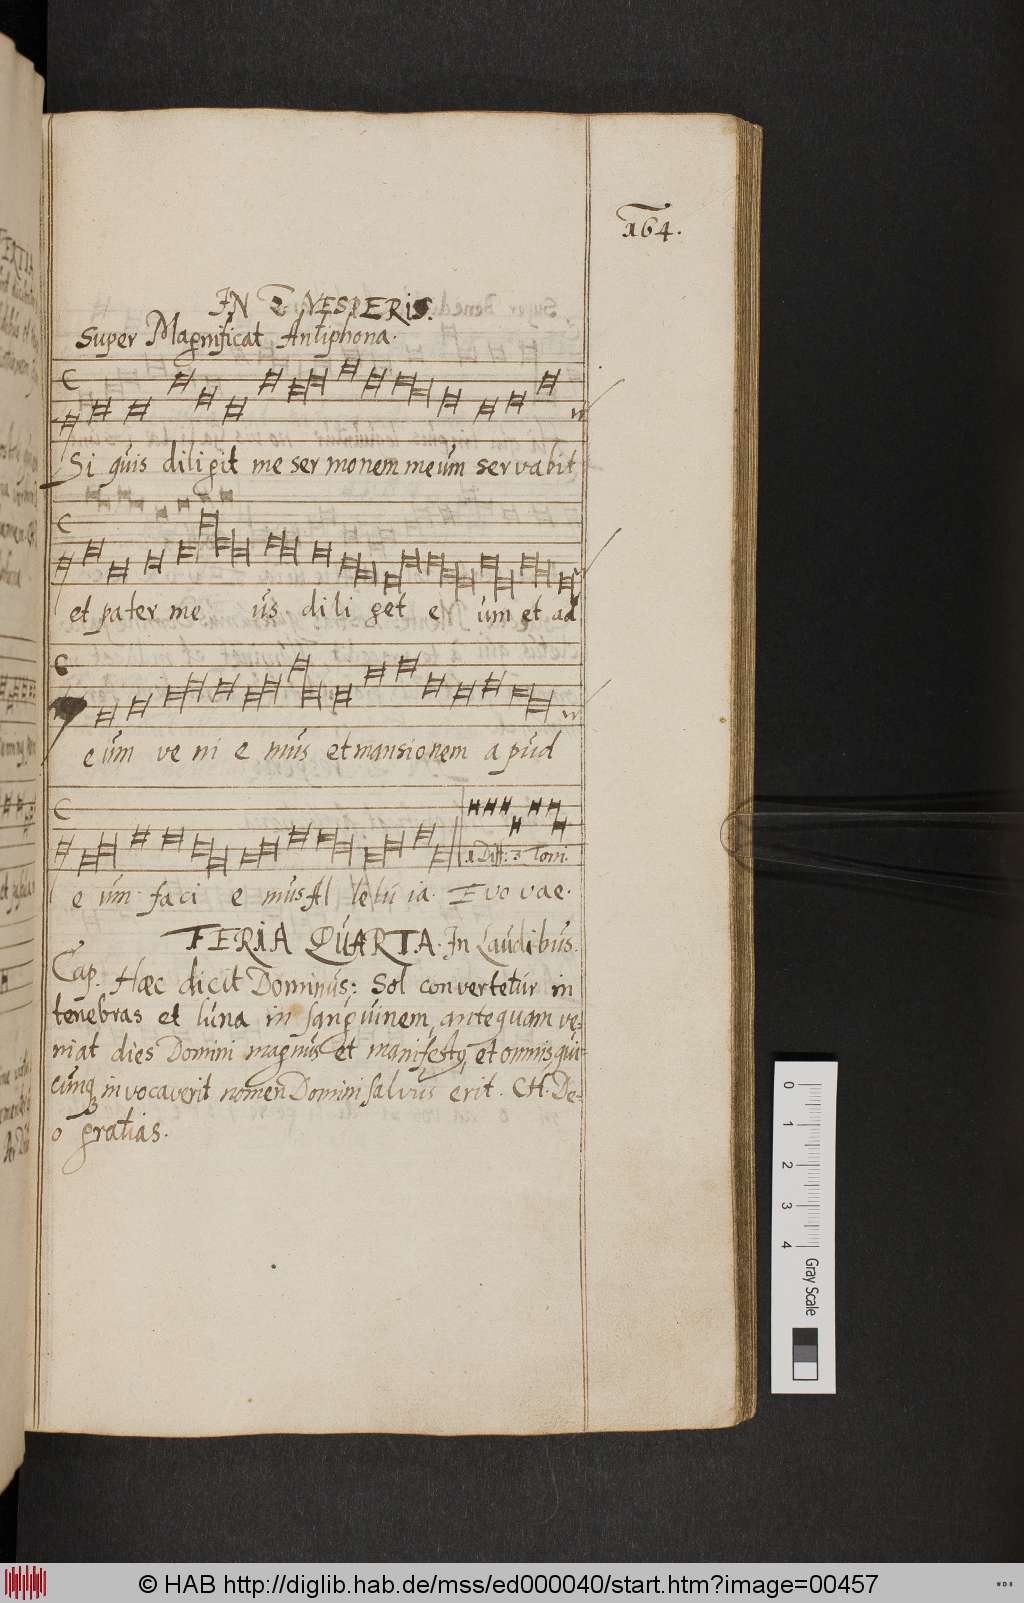 164.
IN 2 VESPERIS.
Super Magnificat Antiphona.
Si quis diligit me ser monem meum servabit
et pater me us. dili get e um et ad
e um ve ni e mus et mansionem apud
1 Diff: 3 Toni.
e um faci e mus Al lelu ia. Evo vae.
FERIA QUARTA. In Laudibus.
Cap. Hæc dicit Dominus: Sol convertetur in
tenebras et luna in sanguinem, antequam ve=
niat dies Domini magnus et manifestq, et omnis qui=
cunqz invocaverit nomen Domini salvus erit. CH. De=
o gratias.
0
1
2
3
4
Gray Scale
© HAB http://diglib.hab.de/mss/ed000040/start.htm?image=00457